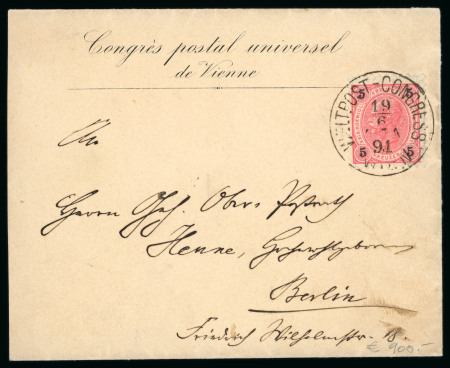 Congrès postal universel
de Vienne
WELTPOST-CONGRESS
19
6
91
WIEN
5 5
5 5
An
Herrn Geh. Ober Postrath
Henne, Hochwohlgeboren
Berlin
Friedrich Wilhelmstr. 18.
€ 900.-